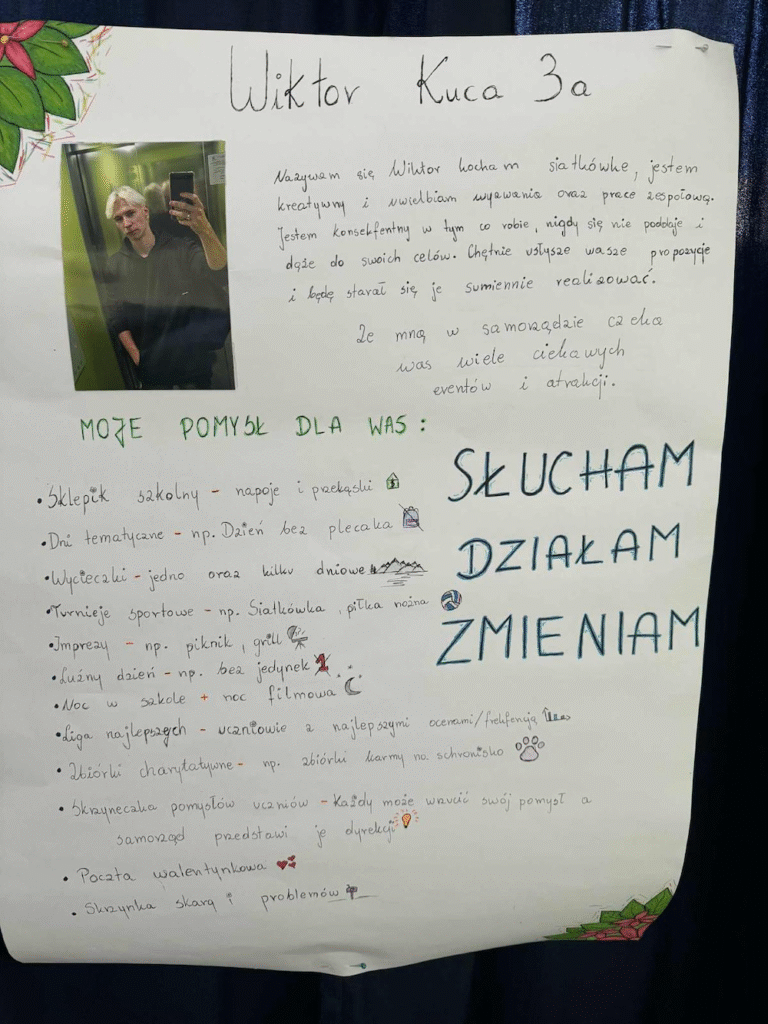 Wiktor Kuca 3a
Nazywam się Wiktor kocham siatkówke, jestem
kreatywny i uwielbiam wyzwania oraz prace zespołową.
Jestem konsekfentny w tym co robie, nigdy się nie poddaje i
dąże do swoich celów. Chętnie usłysze wasze propozycje
i będę starał się je sumiennie realizować.
Ze mną w samorządzie czeka
was wiele ciekawych
eventów i atrakcji.
MOJE POMYSŁ DLA WAS:
SŁUCHAM
DZIAŁAM
ZMIENIAM
• Sklepik szkolny - napoje i przekąski
• Dni tematyczne - np. Dzień bez plecaka
• Wycieczki - jedno oraz kilku dniowe
• Turnieje sportowe - np. Siatkówka, piłka nożna
• Imprezy - np. piknik, grill
• Luźny dzień - np. bez jedynek 1
• Noc w szkole + noc filmowa
• Liga najlepszych - uczniowie z najlepszymi ocenami/frekfencją
• Zbiórki charytatywne - np. zbiórki karmy na schronisko
• Skrzyneczka pomysłów uczniów - Każdy może wrzucić swój pomysł a
samorząd przedstawi je dyrekcji
• Poczta walentynkowa
• Skrzynka skarg i problemów